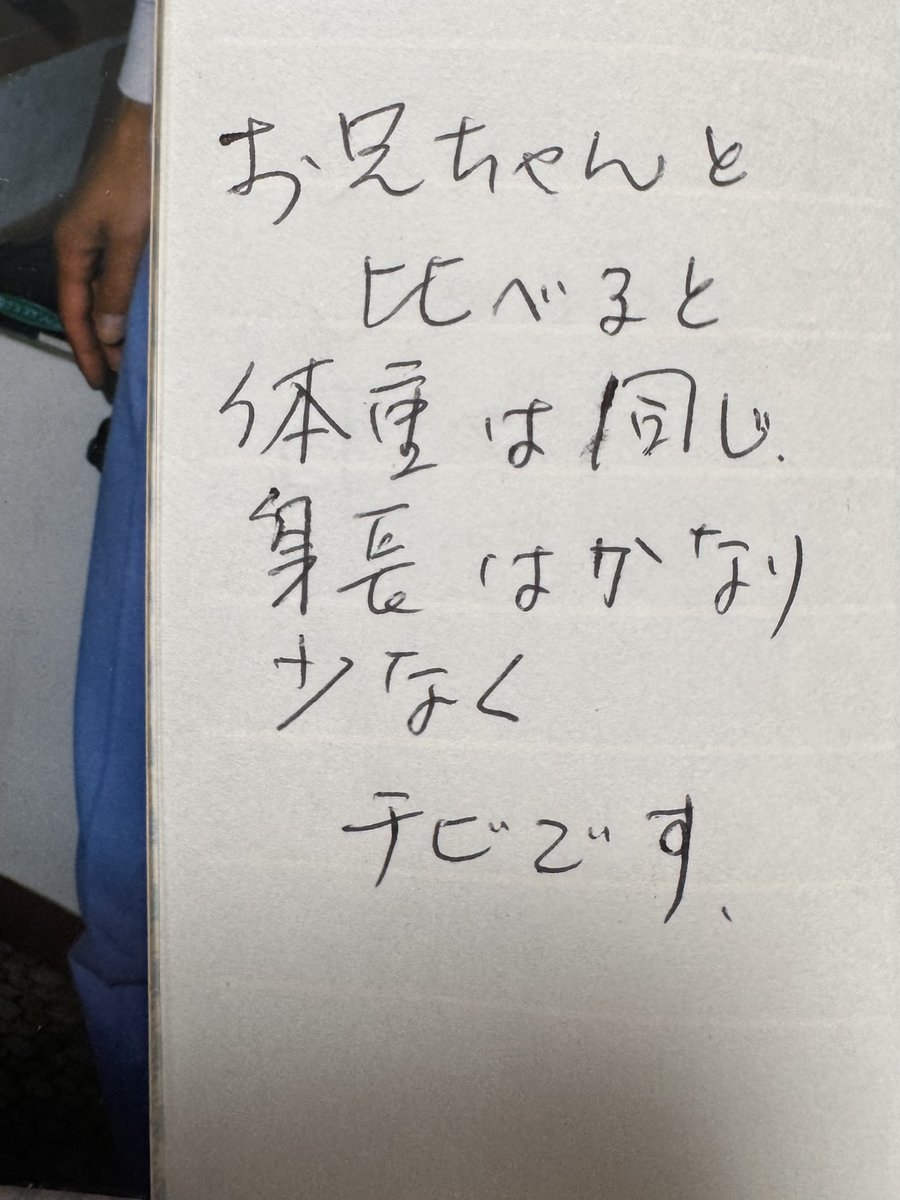 お兄ちゃんと
比べると
体重は同じ.
身長はかなり
少なく
チビです、